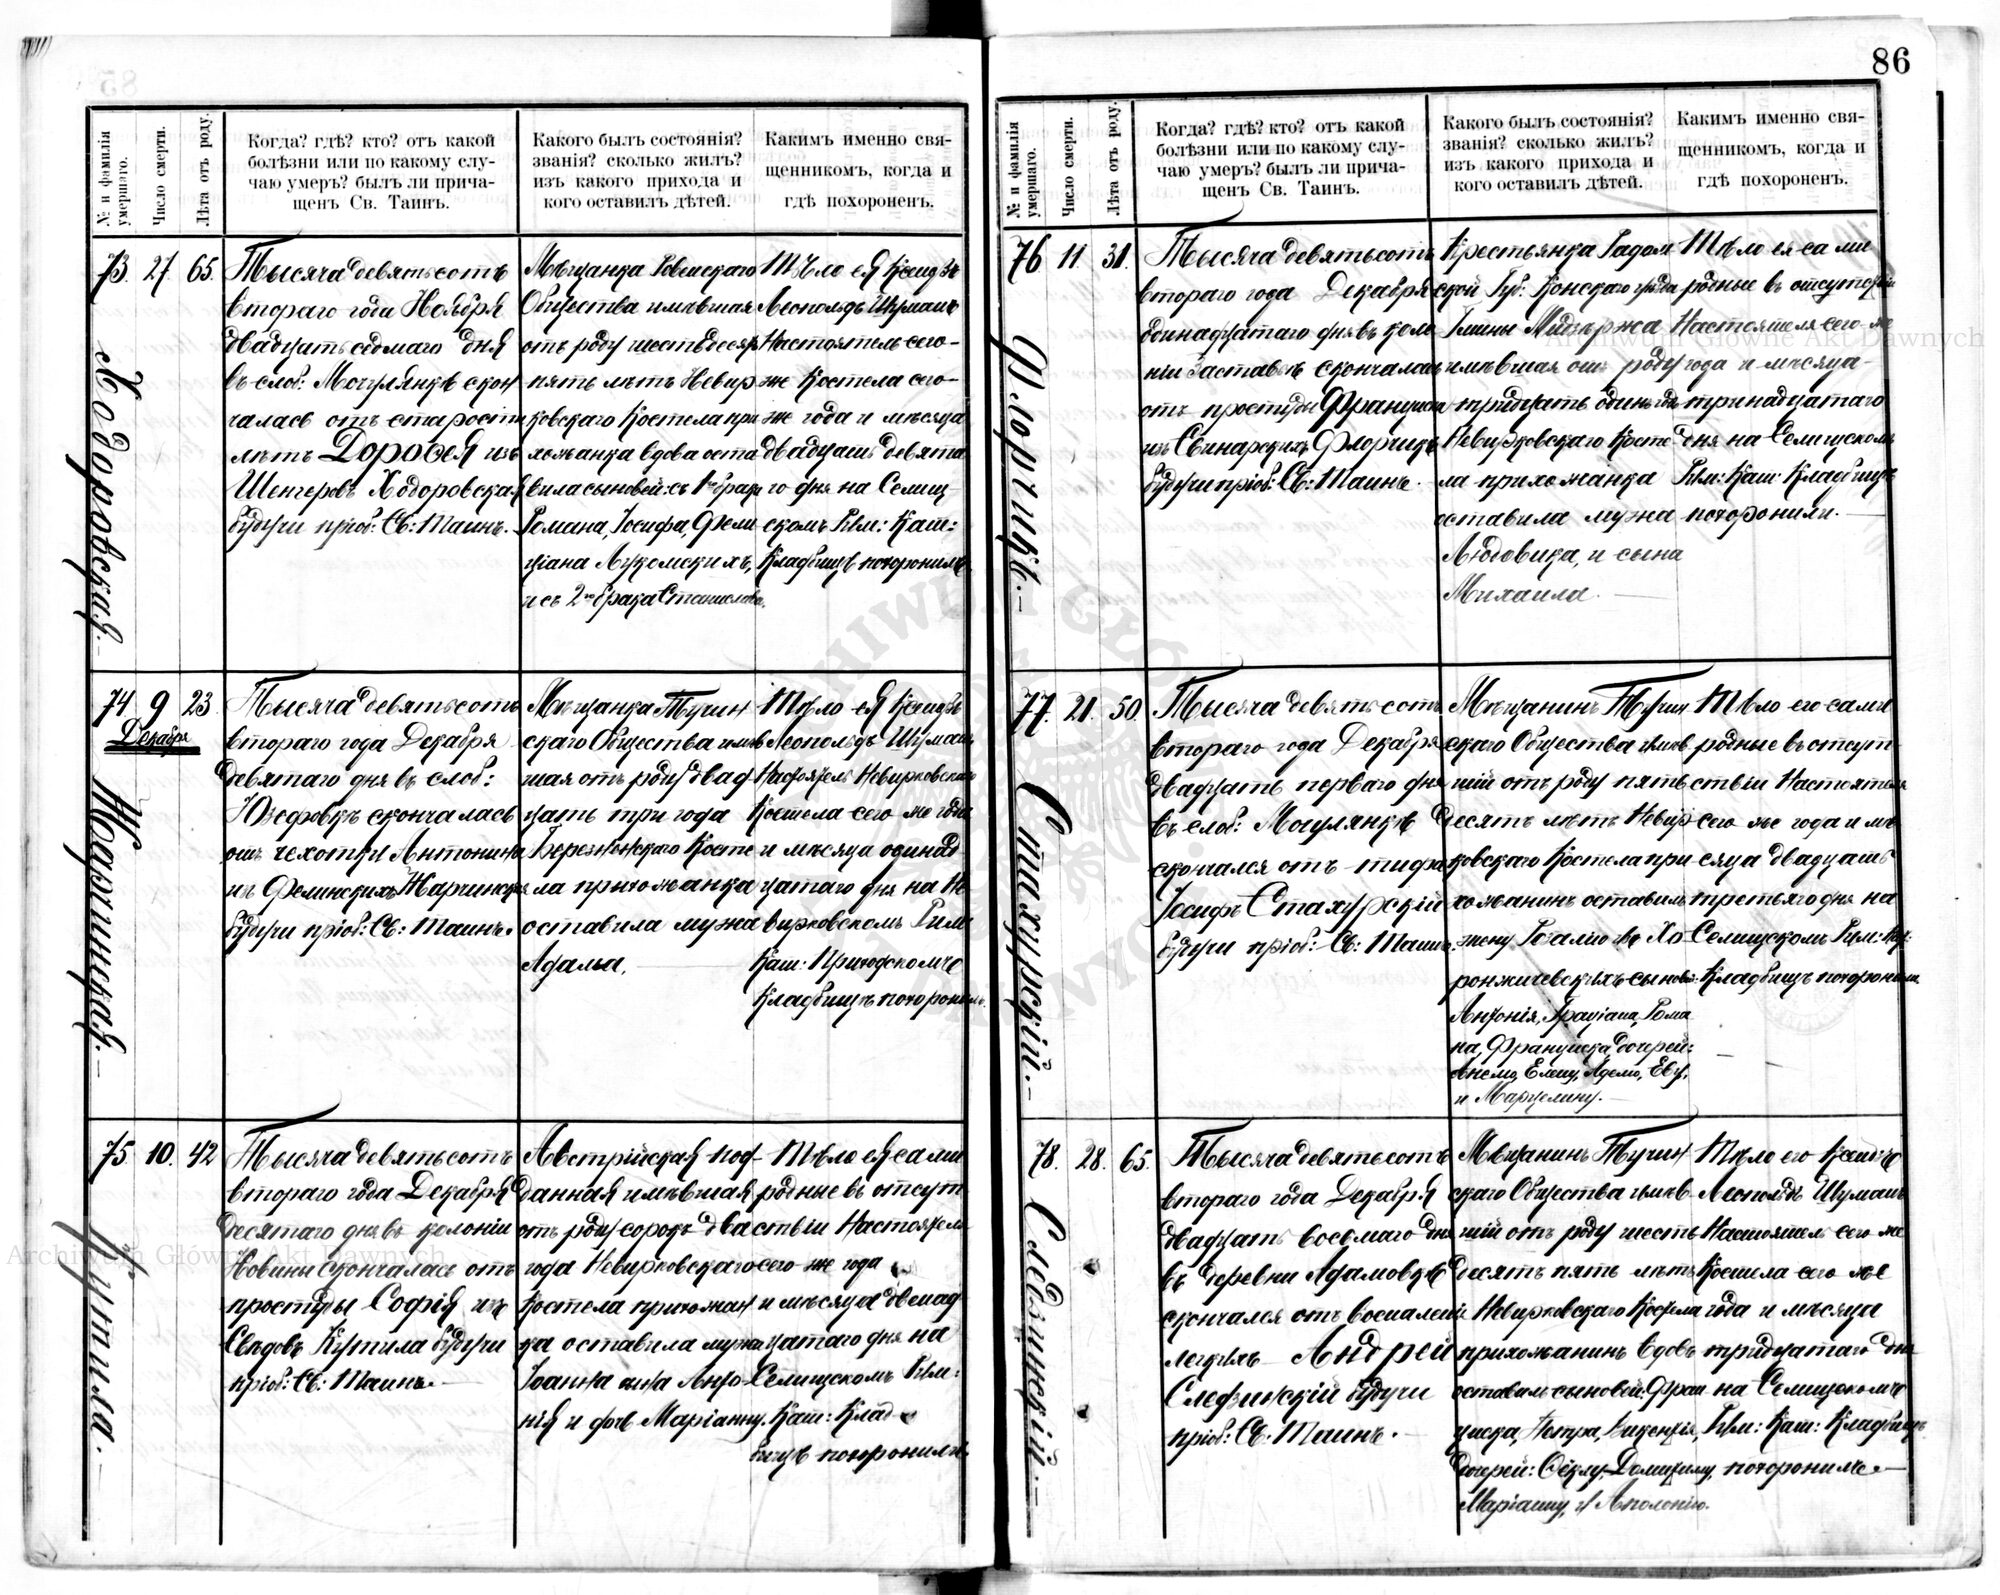 86
№ и фамилія умершаго.
Число смерти.
Лѣта отъ роду.
Когда? гдѣ? кто? отъ какой
болѣзни или по какому слу-
чаю умеръ? былъ ли прича-
щенъ Св. Таинъ.
Какого былъ состоянія?
званія? сколько жилъ?
изъ какого прихода и
кого оставилъ дѣтей.
Какимъ именно свя-
щенникомъ, когда и
гдѣ похороненъ.
73. 27. 65.
Ходоровская.—
Тысяча девятьсотъ
втораго года Ноября
двадцать седмаго дня
въ слоб: Мочулянкѣ скон
чалась отъ старости
лѣтъ Доровея изъ
Шенгеровъ Ходоровская
будучи пріоб: Св: Таинъ.
Мѣщанка Ровенскаго
Общества имѣвшая
отъ роду шестьдесятъ
пять лѣтъ Невир
ковскаго Костела при
хожанка вдова оста
вила сыновей: съ 1го брака
Романа, Іосифа, Фели
ціана Лукомскихъ,
и съ 2го брака Станислава.
Тѣло ея Ксендзъ
Леопольдъ Шуманъ
Настоятель сего-
же Костела сего-
же года и мѣсяца
двадцать девята
го дня на Селищ-
скомъ Рим: Кат:
Кладбищѣ похоронилъ.
74 9 23
Декабря
Жарчинская.—
Тысяча девятьсотъ
втораго года Декабря
девятаго дня въ слоб:
Юзефовкѣ скончалась
отъ чехотки Антонина
изъ Фелинскихъ Жарчинская
будучи пріоб: Св: Таинъ.
Мѣщанка Тучин
скаго Общества имѣв
шая отъ роду двад
цать три года
Бережонскаго Косте
ла прихожанка
оставила мужа
Адама.
Тѣло ея Ксендзъ
Леопольдъ Шуманъ
Настоятель Невирковскаго
Костела сего же года
и мѣсяца одинад
цатаго дня на Не
вирковскомъ Рим
Кат: Приходскомъ
Кладбищѣ похоронилъ.
75 10. 42
Кутила.—
Тысяча девятьсотъ
втораго года Декабря
десятаго дня въ колоніи
Новины скончалась отъ
простуды Софія изъ
Свѣдовъ Кутила будучи
пріоб: Св: Таинъ.—
Австрійская под-
данная имѣвшая
отъ роду сорокъ два
года Невирковскаго
Костела прихожан
ка оставила мужа
Іоанна сына Анто-
нія и дочь Маріанну.
Тѣло ея сами
родные въ отсут
ствіи Настоятеля
сего же года
и мѣсяца двенад-
цатаго дня на
Селищскомъ Рим:
Кат: Клад-
бищѣ похоронили.
№ и фамилія умершаго.
Число смерти.
Лѣта отъ роду.
Когда? гдѣ? кто? отъ какой
болѣзни или по какому слу-
чаю умеръ? былъ ли прича-
щенъ Св. Таинъ.
Какого былъ состоянія?
званія? сколько жилъ?
изъ какого прихода и
кого оставилъ дѣтей.
Какимъ именно свя-
щенникомъ, когда и
гдѣ похороненъ.
76 11 31.
Флорчикъ.—
Тысяча девятьсотъ
втораго года Декабря
одинадцатаго дня въ коло
ніи Заставье скончалась
отъ простуды Францишка
изъ Свинарскихъ Флорчикъ
будучи пріоб: Св: Таинъ.
Крестьянка Радом
ской Губ: Конскаго уѣзда
Гмины
имѣвшая отъ роду
тридцать одинъ годъ
Невирковскаго Косте
ла прихожанка
оставила мужа
Людовика, и сына
Михаила.—
Тѣло ея сами
родные въ отсутствіи
Настоятеля сего же
года и мѣсяца
тринадцатаго
дня на Селищскомъ
Рим: Кат: Кладбищѣ
похоронили.—
77. 21. 50
Стахурскій.—
Тысяча девятьсотъ
втораго года Декабря
двадцать перваго дня
въ слоб: Мочулянкѣ
скончался отъ тифа
Іосифъ Стахурскій
будучи пріоб: Св: Таинъ.
Мѣщанинъ Тучин
скаго Общества имѣв
шій отъ роду пять
десятъ лѣтъ Невир
ковскаго Костела при
хожанинъ оставилъ
жену Розалію изъ Хо
ронжичевскихъ сыновей:
Антонія, Граціана, Рома
на, Франциска дочерей:
Анелю, Елену, Аделю, Еву,
и Марцелину.—
Тѣло его сами
родные въ отсут-
ствіи Настоятеля
сего же года и мѣ
сяца двадцать
третьяго дня на
Селищскомъ Рим: Кат:
Кладбищѣ похоронили.
78. 28. 65.
Следзинскій.—
Тысяча девятьсотъ
втораго года Декабря
двадцать восьмаго дня
въ деревни Адамовкѣ
скончался отъ воспаленія
легкихъ Андрей
Следзинскій будучи
пріоб: Св: Таинъ.—
Мѣщанинъ Тучин
скаго Общества имѣв
шій отъ роду шесть
десятъ пять лѣтъ
Невирковскаго Костела
прихожанинъ вдовъ
оставилъ сыновей: Фран
циска, Петра, Викентія,
дочерей: Феклу, Домицелу,
Маріанну, и Аполонію.
Тѣло его Ксендзъ
Леопольдъ Шуманъ
Настоятель сего же
Костела сего же
года и мѣсяца
тридцатаго дня
на Селищскомъ
Рим: Кат: Кладбищѣ
похоронилъ.—
Archiwum Główne Akt Dawnych
Archiwum Główne Akt Dawnych